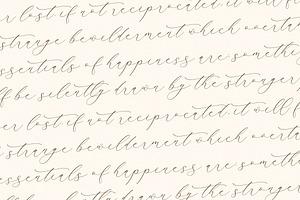 er lost if not reciprocated it will f
strange bewilderment which overta
essentials of happiness are somethin
be silently drawn by the stronger
er lost if not reciprocated it will f
strange bewilderment which overta
essentials of happiness are someth
drawn by the stronger